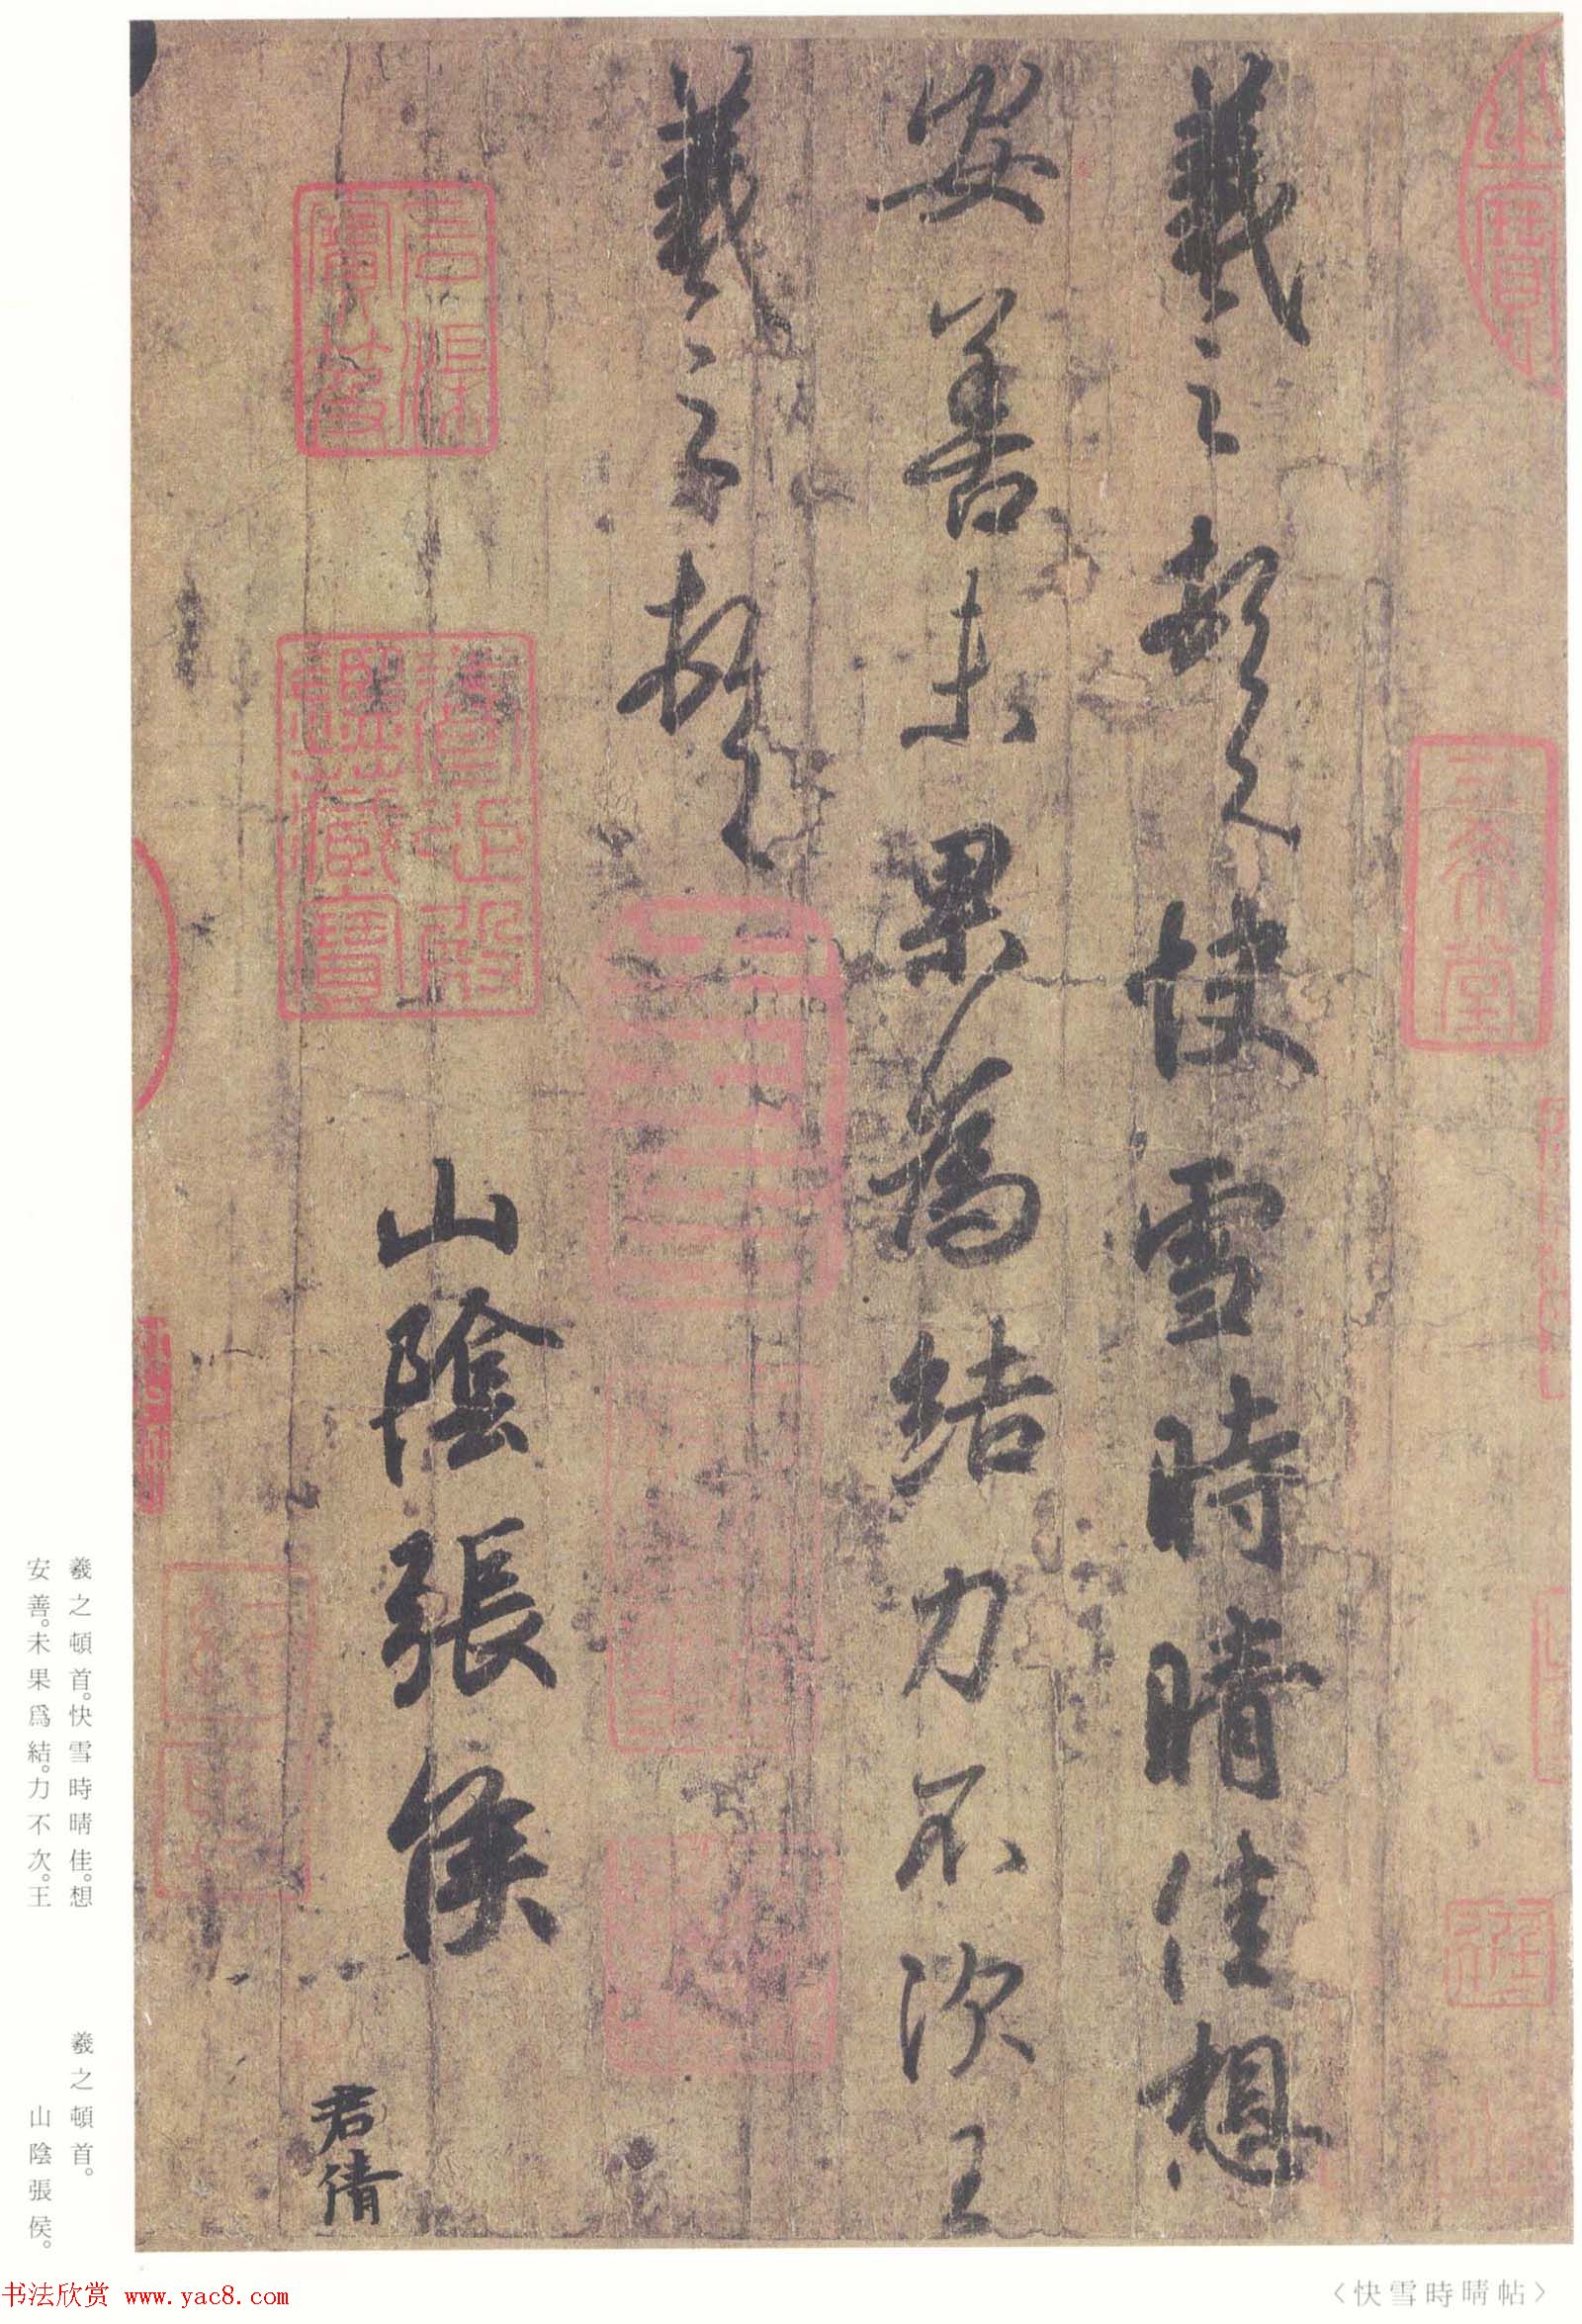 羲之頓首快雪時晴佳想
安善未果為結力不次王
羲之頓首
山陰張侯
君倩
三希堂
養心殿
鑑藏寶
羲之頓首。快雪時晴佳。想
安善。未果爲結。力不次。王
羲之頓首。
山陰張侯。
〈快雪時晴帖〉
书法欣赏 www.yac8.com